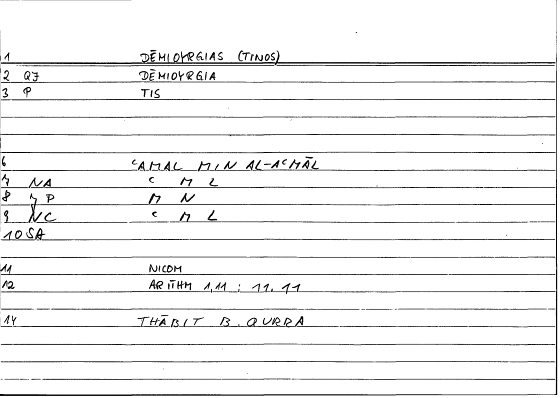 1 DĒMIOYRGIAS (TINOS)
2 QJ DĒMIOYRGIA
3 P TIS
6 ᶜAMAL MIN AL-AᶜMĀL
7 NA ᶜ M L
8 7 P M N
9 NC ᶜ M L
10 SA
11 NICOM
12 ARITHM 1,11 : 11. 11
14 THĀBIT B. QURRA